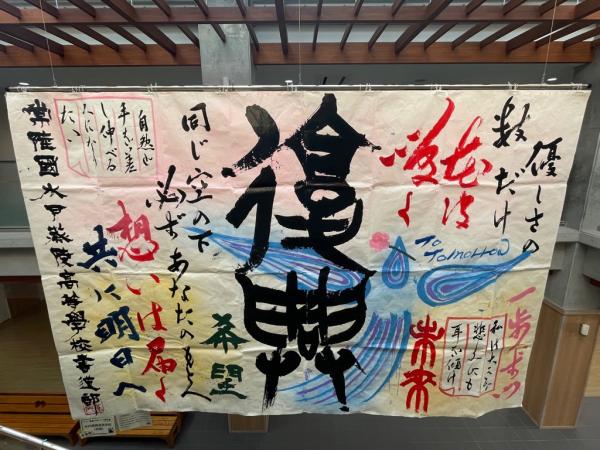 優しさの
数だけ
花は
咲く
To
Tomorrow
一歩ずつ
私は大きな
悲しみにも
耳を傾け
未来
復興
希望
同じ空の下
必ずあなたのもとへ
想いは届く
共に明日へ
自然に
手を差
し伸べる
人になり
たい
常陸國水戸葵陵高等學校書道部